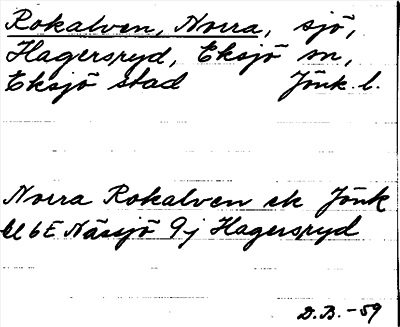 Rokalven, Norra, sjö,
Hagersryd, Eksjö sn,
Eksjö stad Jönk. l.
Norra Rokalven ek Jönk
bl 6E Nässjö 9j Hagersryd
D.B.-59